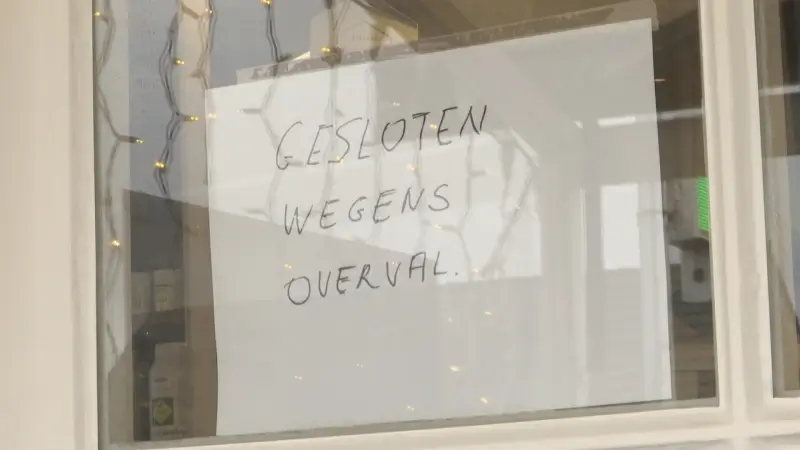 GESLOTEN
WEGENS
OVERVAL.